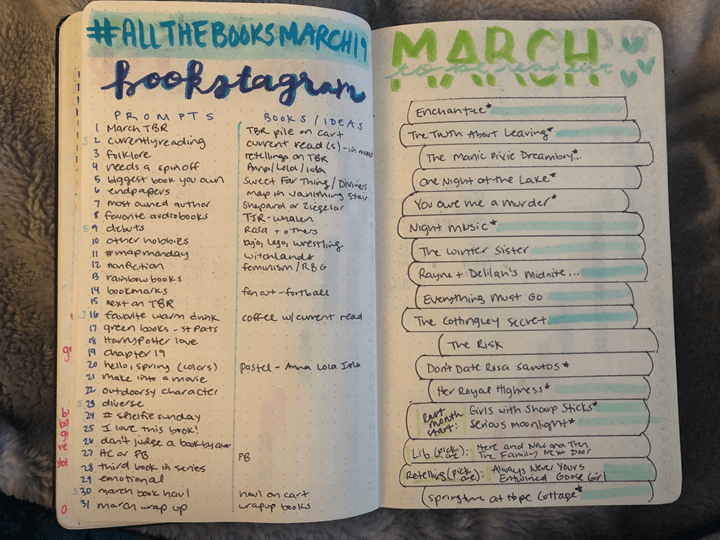 #ALLTHEBOOKSMARCH19
bookstagram
PROMPTS BOOKS/IDEAS
1 March TBR TBR pile on cart
2 currently reading current read(s)
3 folklore retellings on TBR
4 needs a spinoff Anna/Lola/Isla
5 biggest book you own Sweet Far Thing/Diviners
6 endpapers map in Vanishing Stair
7 most owned author Shepard or Ziegesar
8 favorite audiobooks TSR-Whalen
9 debuts Rosa + others
10 other hobbies bojo, lego, wrestling
11 #mapmonday witchlands
12 nonfiction feminism/RBG
13 rainbow books
14 bookmarks fanout-football
15 next on TBR
16 favorite warm drink coffee w/current read
17 green books - st pats
18 Harry Potter love
19 chapter 19
20 hello, spring (colors) pastel - Anna Lola Isla
21 make into a movie
22 outdoorsy character
23 diverse
24 # shelfie sunday
25 I love this book!
26 don't judge a book by cover
27 HC or PB PB
28 third book in series
29 emotional
30 march book haul haul on cart
31 march wrap up wrapup books
MARCH
to be read list
Enchantée*
The Truth About Leaving*
The Manic Pixie Dreamboy...
One Night at the Lake*
You owe me a murder*
Night Music*
The Winter Sister
Rayne + Delilah's Midnite...
Everything Must Go
The Cottingley Secret
The Risk
Don't Date Rosa Santos*
Her Royal Highness*
Last month start: Girls with Sharp Sticks*
Serious Moonlight*
Lib (pick one): Here and Now and Then
The Family Next Door
Retelling (pick one): Always Never Yours
Entwined Goose Girl
Springtime at Hope Cottage*